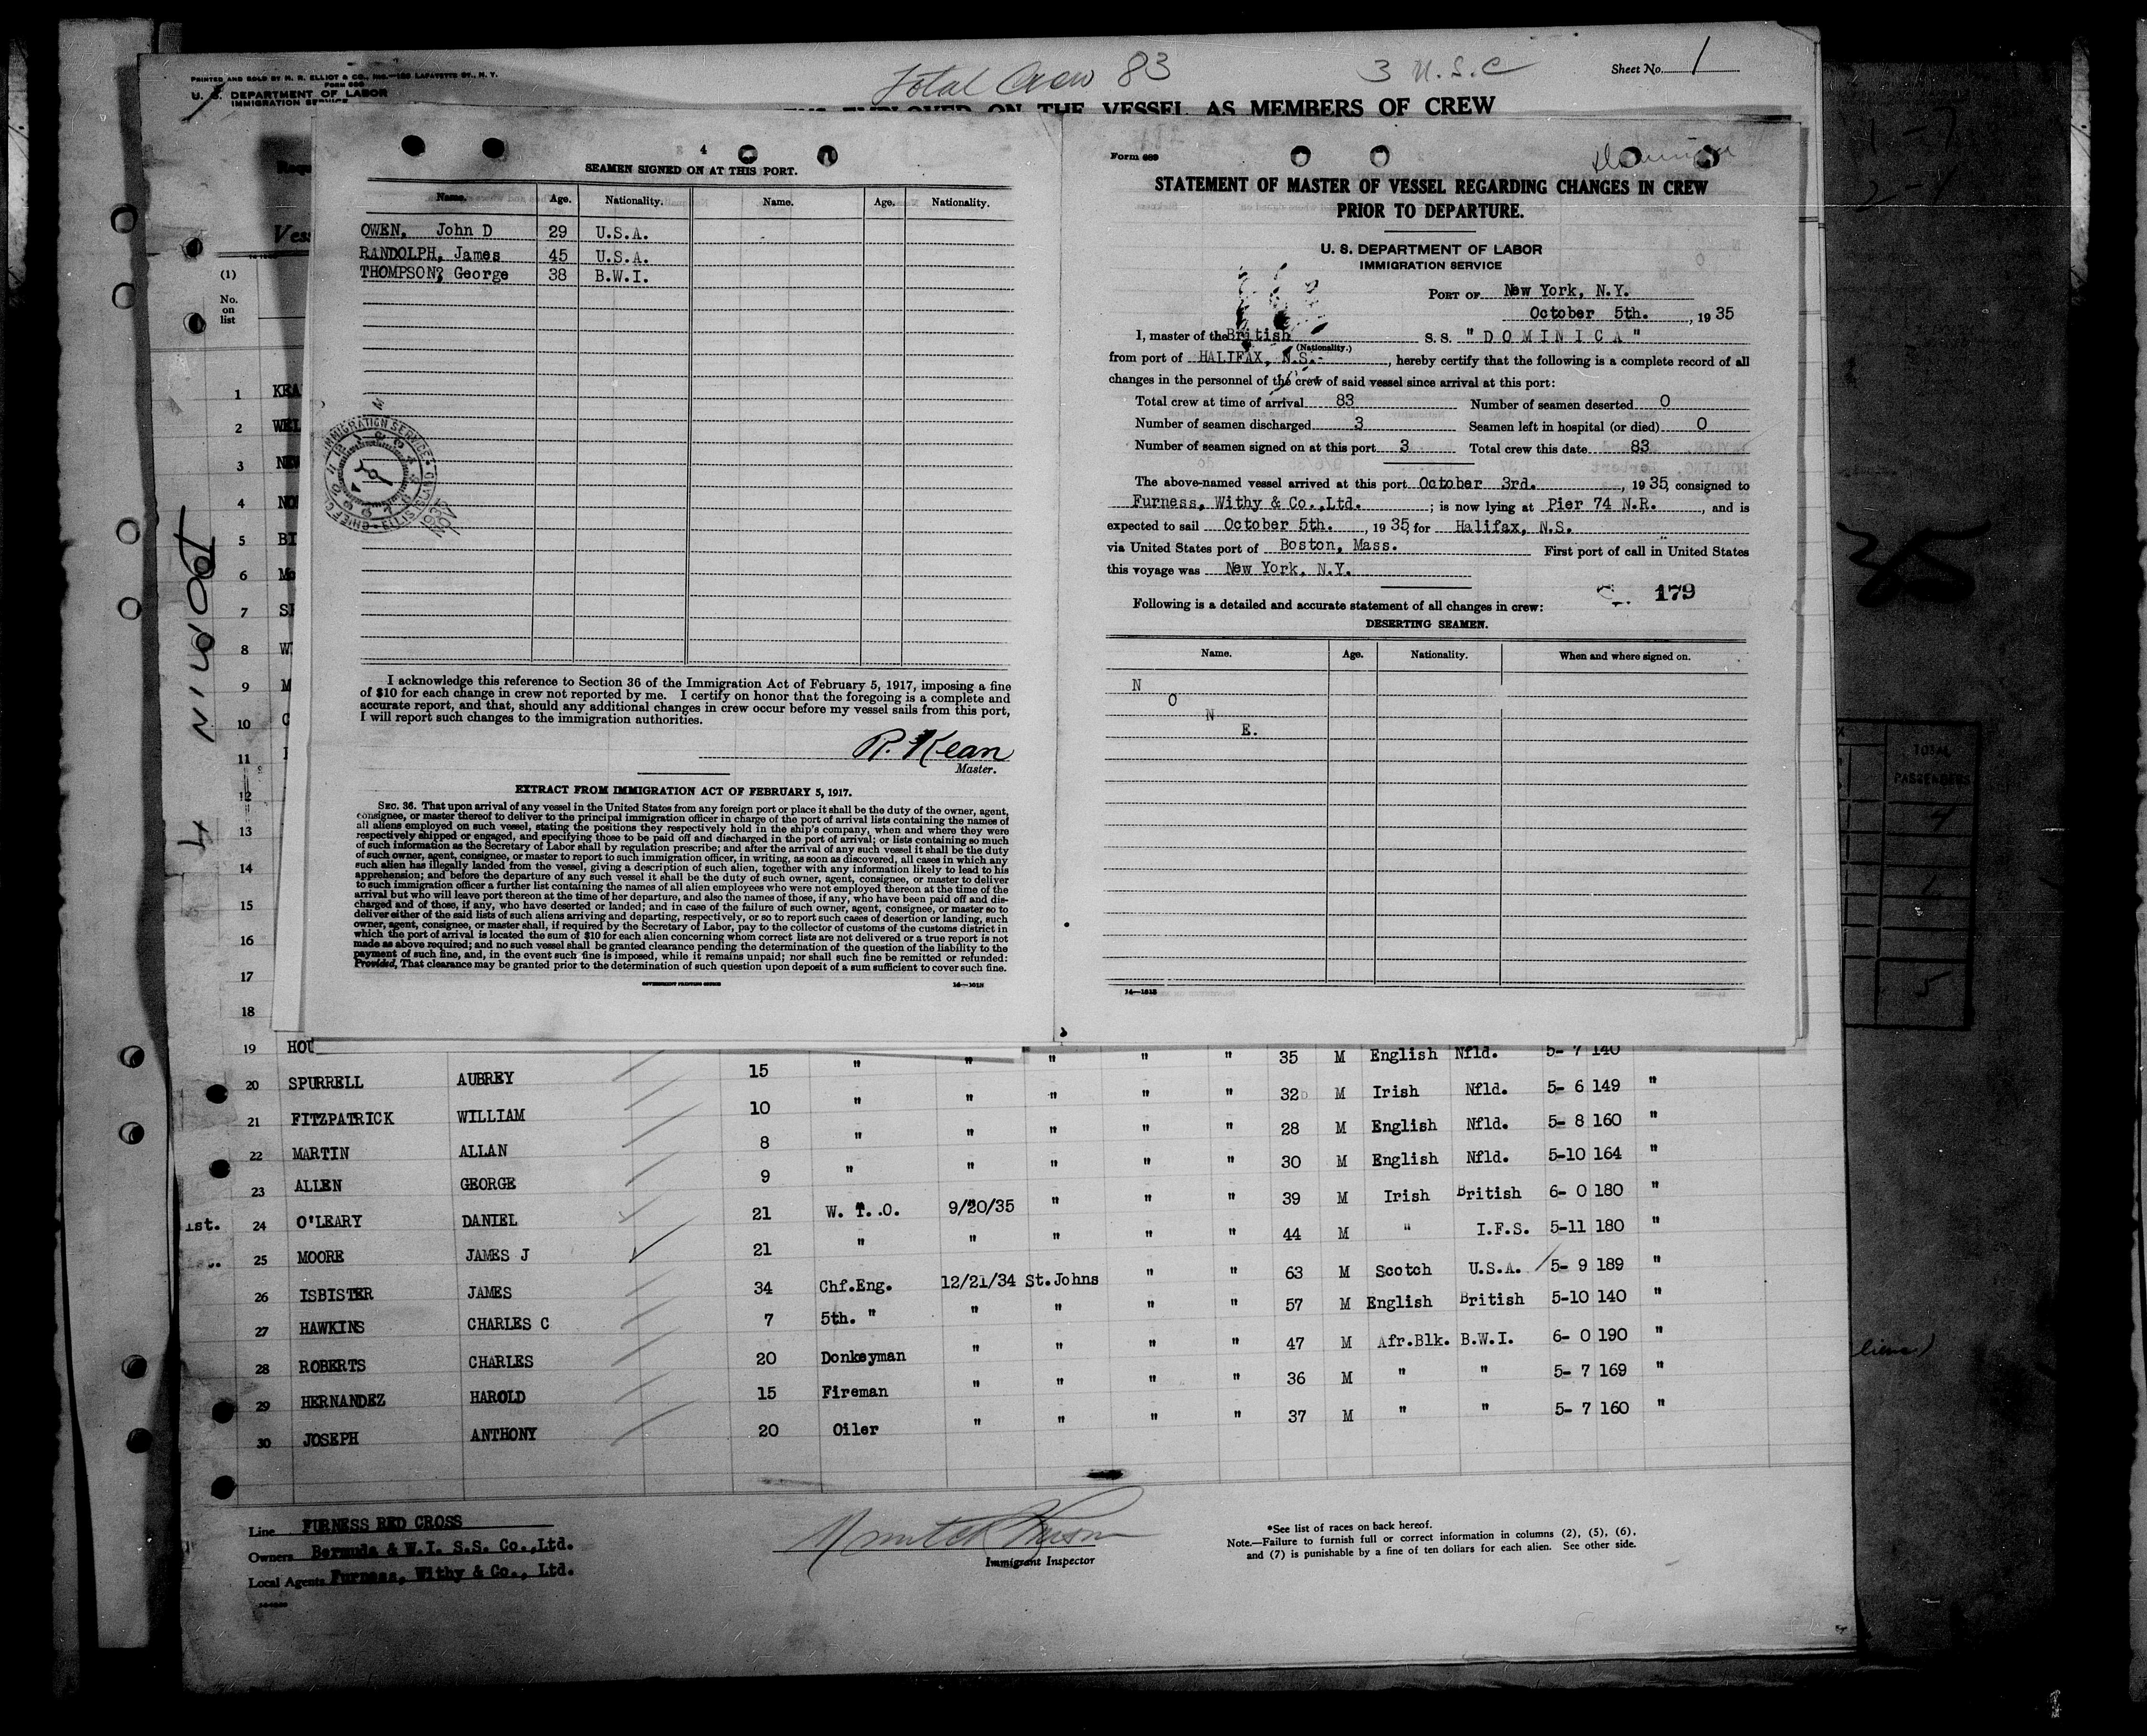 PRINTED AND SOLD BY M. R. ELLIOT & CO., INC.—129 LAFAYETTE ST., N. Y.
U. S. DEPARTMENT OF LABOR
IMMIGRATION SERVICE
Total Crew 83
3 U.S.C
Sheet No. 1
EMPLOYED ON THE VESSEL AS MEMBERS OF CREW
(1)
No.
on
list
1 KEA
2 WEL
3 NEW
4 NO
5 BI
6 Mo
7 SP
8 W
9 M
10
11
12
13
14
15
16
17
18
4
SEAMEN SIGNED ON AT THIS PORT.
Name. Age. Nationality. Name. Age. Nationality.
OWEN, John D 29 U.S.A.
RANDOLPH, James 45 U.S.A.
THOMPSON, George 38 B.W.I.
IMMIGRATION SERVICE
I acknowledge this reference to Section 36 of the Immigration Act of February 5, 1917, imposing a fine
of $10 for each change in crew not reported by me. I certify on honor that the foregoing is a complete and
accurate report, and that, should any additional changes in crew occur before my vessel sails from this port,
I will report such changes to the immigration authorities.
R. Kean
Master.
EXTRACT FROM IMMIGRATION ACT OF FEBRUARY 5, 1917.
SEC. 36. That upon arrival of any vessel in the United States from any foreign port or place it shall be the duty of the owner, agent,
consignee, or master thereof to deliver to the principal immigration officer in charge of the port of arrival lists containing the names of
all aliens employed on such vessel, stating the positions they respectively hold in the ship's company, when and where they were
respectively shipped or engaged, and specifying those to be paid off and discharged in the port of arrival; or lists containing so much
of such information as the Secretary of Labor shall by regulation prescribe; and after the arrival of any such vessel it shall be the duty
of such owner, agent, consignee, or master to report to such immigration officer, in writing, as soon as discovered, all cases in which any
such alien has illegally landed from the vessel, giving a description of such alien, together with any information likely to lead to his
apprehension; and before the departure of any such vessel it shall be the duty of such owner, agent, consignee, or master to deliver
to such immigration officer a further list containing the names of all alien employees who were not employed thereon at the time of the
arrival but who will leave port thereon at the time of her departure, and also the names of those, if any, who have been paid off and dis-
charged and of those, if any, who have deserted or landed; and in case of the failure of such owner, agent, consignee, or master so to
deliver either of the said lists of such aliens arriving and departing, respectively, or so to report such cases of desertion or landing, such
owner, agent, consignee, or master shall, if required by the Secretary of Labor, pay to the collector of customs of the customs district in
which the port of arrival is located the sum of $10 for each alien concerning whom correct lists are not delivered or a true report is not
made as above required; and no such vessel shall be granted clearance pending the determination of the question of the liability to the
payment of such fine, and, in the event such fine is imposed, while it remains unpaid; nor shall such fine be remitted or refunded:
Provided, That clearance may be granted prior to the determination of such question upon deposit of a sum sufficient to cover such fine.
GOVERNMENT PRINTING OFFICE
Form 689
STATEMENT OF MASTER OF VESSEL REGARDING CHANGES IN CREW
PRIOR TO DEPARTURE.
U. S. DEPARTMENT OF LABOR
IMMIGRATION SERVICE
PORT OF New York, N.Y.
October 5th., 1935
I, master of the British S.S. "DOMINICA"
(Nationality.)
from port of HALIFAX, N.S.-, hereby certify that the following is a complete record of all
changes in the personnel of the crew of said vessel since arrival at this port:
Total crew at time of arrival 83 Number of seamen deserted 0
Number of seamen discharged 3 Seamen left in hospital (or died) 0
Number of seamen signed on at this port 3 Total crew this date 83
The above-named vessel arrived at this port October 3rd., 1935, consigned to
Furness, Withy & Co.,Ltd.; is now lying at Pier 74 N.R., and is
expected to sail October 5th., 1935, for Halifax, N.S.
via United States port of Boston, Mass. First port of call in United States
this voyage was New York, N.Y.
179
Following is a detailed and accurate statement of all changes in crew:
DESERTING SEAMEN.
Name. Age. Nationality. When and where signed on.
N
O
N
E.
TOTAL
PASSENGERS
19 HOU 35 M English Nfld. 5- 7 140
20 SPURRELL AUBREY 15 " " " " " 32 M Irish Nfld. 5- 6 149 "
21 FITZPATRICK WILLIAM 10 " " " " " 28 M English Nfld. 5- 8 160 "
22 MARTIN ALLAN 8 " " " " " 30 M English Nfld. 5-10 164 "
23 ALLEN GEORGE 9 " " " " " 39 M Irish British 6- 0 180 "
1st. 24 O'LEARY DANIEL 21 W. T. O. 9/20/35 " " " 44 M " I.F.S. 5-11 180 "
25 MOORE JAMES J 21 " " " " " 63 M Scotch U.S.A. 5- 9 189 "
26 ISBISTER JAMES 34 Chf.Eng. 12/21/34 St.Johns " " 57 M English British 5-10 140 "
27 HAWKINS CHARLES C 7 5th. " " " " " 47 M Afr.Blk. B.W.I. 6- 0 190 "
28 ROBERTS CHARLES 20 Donkeyman " " " " 36 M " " 5- 7 169 "
29 HERNANDEZ HAROLD 15 Fireman " " " " 37 M " " 5- 7 160 "
30 JOSEPH ANTHONY 20 Oiler
Line FURNESS RED CROSS
Owners Bermuda & W.I. S.S. Co.,Ltd.
Local Agents Furness, Withy & Co., Ltd.
Immigrant Inspector
*See list of races on back hereof.
Note.—Failure to furnish full or correct information in columns (2), (5), (6),
and (7) is punishable by a fine of ten dollars for each alien. See other side.